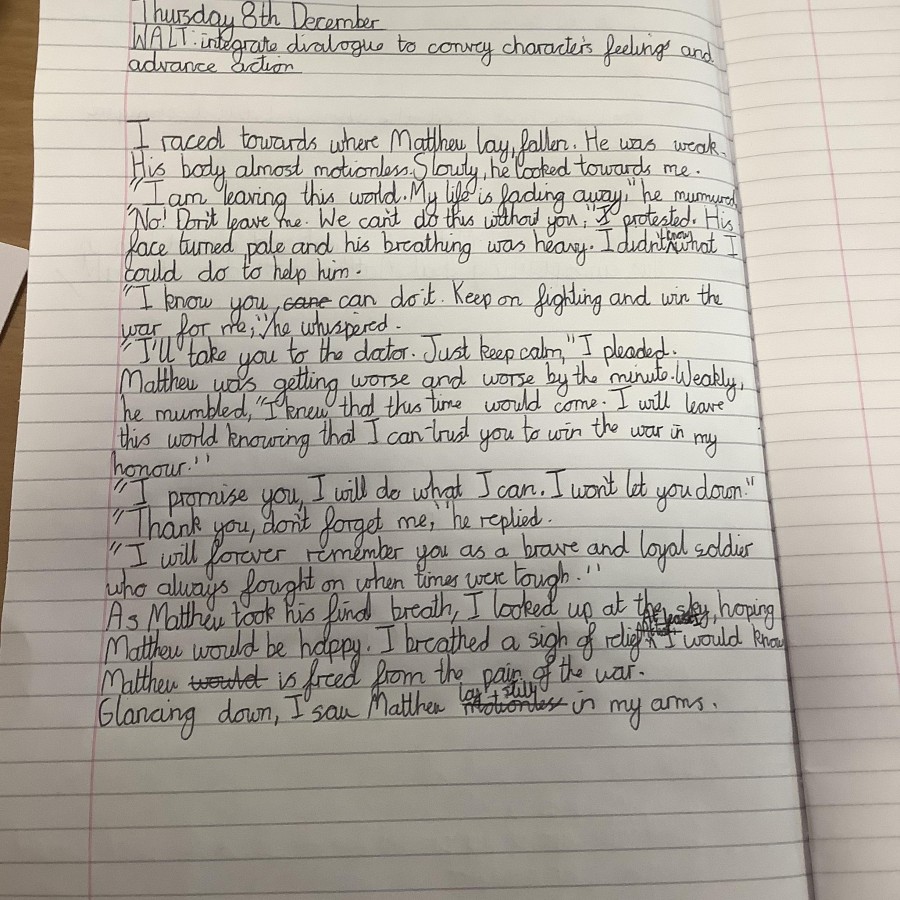 Thursday 8th December
WALT: integrate dialogue to convey character's feelings and
advance action
I raced towards where Matthew lay, fallen. He was weak.
His body almost motionless. Slowly, he looked towards me.
"I am leaving this world. My life is fading away," he mumured.
"No! Don't leave me. We can't do this without you," I protested. His
face turned pale and his breathing was heavy. I didn't know what I
could do to help him.
"I know you cane can do it. Keep on fighting and win the
war for me," he whispered.
"I'll take you to the doctor. Just keep calm," I pleaded.
Matthew was getting worse and worse by the minute. Weakly,
he mumbled, "I knew that this time would come. I will leave
this world knowing that I can trust you to win the war in my
honour."
"I promise you, I will do what I can. I won't let you down."
"Thank you, don't forget me," he replied.
"I will forever remember you as a brave and loyal soldier
who always fought on when times were tough."
As Matthew took his final breath, I looked up at the sky, hoping
Matthew would be happy. I breathed a sigh of relief I would know
Matthew would is freed from the pain of the war.
Glancing down, I saw Matthew motionless lay still in my arms.